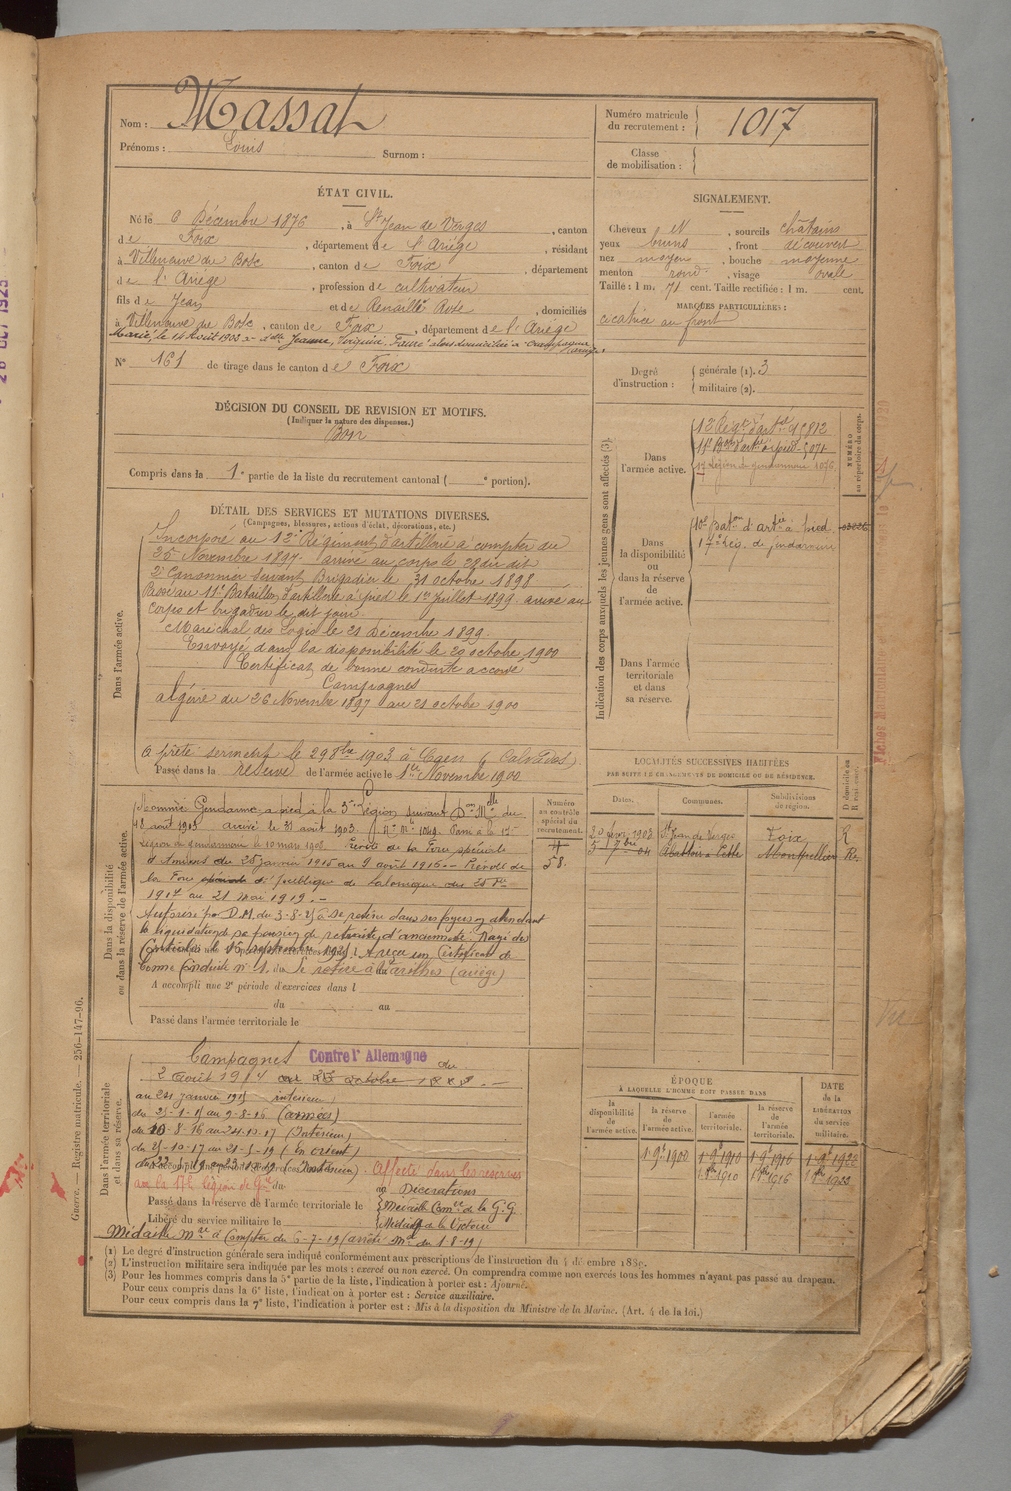 Nom : Massat
Prénoms : Louis Surnom :
Numéro matricule du recrutement : 1017
Classe de mobilisation :
ÉTAT CIVIL.
Né le 6 Décembre 1876, à St Jean de Verges, canton
de Foix, département de l'Ariège, résidant
à Villeneuve du Bosc, canton de Foix, département
de l'Ariège, profession de cultivateur
fils de Jean et de Renaillé Rose, domiciliés
à Villeneuve du Bosc, canton de Foix, département de l'Ariège
Marié, le 14 Août 1903 à Jeanne, Virginie, Faure alors domiciliée à
N° 161 de tirage dans le canton de Foix
SIGNALEMENT.
Cheveux et, sourcils châtains
yeux bruns, front découvert
nez moyen, bouche moyenne
menton rond, visage ovale
Taille : 1 m. 71 cent. Taille rectifiée : 1 m. cent.
MARQUES PARTICULIÈRES :
cicatrice au front
Degré d'instruction : générale (1). 3
militaire (2).
DÉCISION DU CONSEIL DE REVISION ET MOTIFS.
(Indiquer la nature des dispenses.)
Bon
Compris dans la 1e partie de la liste du recrutement cantonal ( e portion).
DÉTAIL DES SERVICES ET MUTATIONS DIVERSES.
(Campagnes, blessures, actions d'éclat, décorations, etc.)
Dans l'armée active.
Incorporé au 12e Régiment d'artillerie à compter du
25 Novembre 1897 arrivé au corps le dit
2e Canonnier Servant Brigadier le 31 octobre 1898
Passé au 11e Bataillon d'artillerie à pied le 1er Juillet 1899 arrivé au
corps et brigadier le dit jour.
Maréchal des Logis le 21 Décembre 1899.
Envoyé dans la disponibilité le 20 octobre 1900
Certificat de bonne conduite accordé
Campagnes
Algérie du 26 Novembre 1897 au 21 octobre 1900
A prêté serment le 29 8bre 1903 à Caen (Calvados)
Passé dans la réserve de l'armée active le 1er Novembre 1900
Indication des corps auxquels les jeunes gens sont affectés (3).
NUMÉRO au répertoire du corps.
Dans l'armée active.
12 Rég. d'art. 15812
11e Bon d'art. à pied 5071
17 Légion de gendarmerie 1076
Dans la disponibilité ou dans la réserve de l'armée active.
10e Baton d'artie à pied
17e Lég. de gendarmerie
Dans l'armée territoriale et dans sa réserve.
LOCALITÉS SUCCESSIVES HABITÉES
PAR SUITE DE CHANGEMENTS DE DOMICILE OU DE RÉSIDENCE.
Dates. Communes. Subdivisions de région. D domicile ou R résidence.
1903 St Jean de Verges Foix R
5 7bre 04 Montpellier R.
Dans la disponibilité ou dans la réserve de l'armée active.
Numéro au contrôle spécial du recrutement.
58.
Nommé Gendarme à pied à la 3e Légion suivant Don Mlle du
18 août 1903 arrivé le 31 août 1903. Passé à la 17e
Légion de gendarmerie le 10 mars 1908. Prévôté de la Force spéciale
d'Amiens du 25 janvier 1915 au 9 août 1916. Prévôté de
la Force publique de Salonique du 25 8bre
1917 au 21 mai 1919.
Autorisé par D.M. du 3-8-25 à se retirer dans ses foyers en attendant
la liquidation de sa pension de retraite d'ancienneté. Rayé des
Contrôles le 15 septembre 1925. A reçu un Certificat de
bonne Conduite n° 1. Se retire à (Ariège)
A accompli une 2e période d'exercices dans l
du au
Passé dans l'armée territoriale le
Dans l'armée territoriale et dans sa réserve.
Campagnes Contre l'Allemagne du
2 août 1914
au 24 janvier 1915 intérieur
du 25-1-15 au 9-8-16 (armées)
du 10-8-16 au 24-10-17 (Intérieur)
du 25-10-17 au 21-5-19 (En orient)
du 22-5-19 au 23-10-19 (Intérieur). Affecté dans les réserves
au la 17e légion de Gie
Décorations
Passé dans la réserve de l'armée territoriale le Médaille Comve de la G.G.
Libéré du service militaire le Médaille de la Victoire
Médaille Mre à compter du 6-7-19 (arrêté Mel du 1-8-19)
ÉPOQUE
À LAQUELLE L'HOMME DOIT PASSER DANS
la disponibilité de l'armée active. la réserve de l'armée active. l'armée territoriale. la réserve de l'armée territoriale.
DATE de la LIBÉRATION du service militaire.
1 9bre 1900 1 9bre 1910 1 9bre 1916 1 9bre 1922
1910 1916 1922
(1) Le degré d'instruction générale sera indiqué conformément aux prescriptions de l'instruction du 4 décembre 1889.
(2) L'instruction militaire sera indiquée par les mots : exercé ou non exercé. On comprendra comme non exercés tous les hommes n'ayant pas passé au drapeau.
(3) Pour les hommes compris dans la 5e partie de la liste, l'indication à porter est : Ajourné.
Pour ceux compris dans la 6e liste, l'indication à porter est : Service auxiliaire.
Pour ceux compris dans la 7e liste, l'indication à porter est : Mis à la disposition du Ministre de la Marine. (Art. 4 de la loi.)
Guerre. — Registre matricule. — 256-147-96.